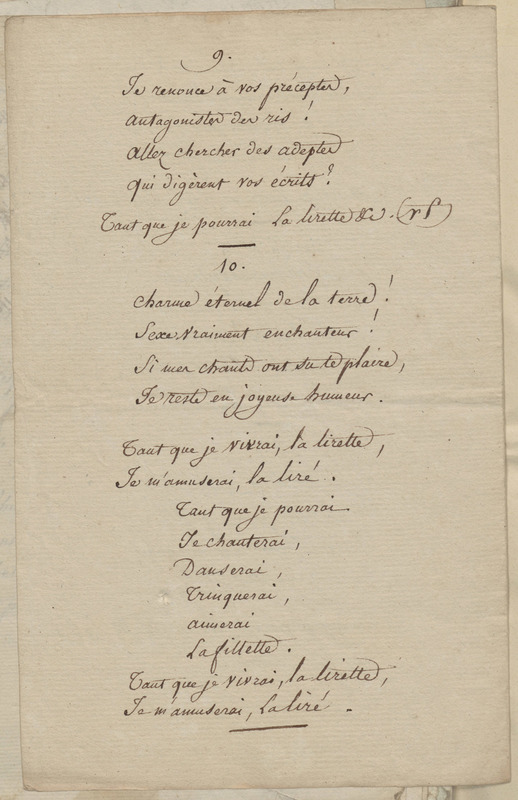 9.
Je renonce à vos préceptes,
antagonistes des ris !
allez chercher des adeptes
qui digèrent vos écrits ?
Tant que je pourrai La lirette &c.
10.
Charme éternel de la terre !
Sexe vraiment enchanteur !
Si mes chants ont su te plaire,
Je reste en joyeuse humeur.
Tant que je vivrai, la lirette,
Je m'amuserai, la liré.
Tant que je pourrai
Je chanterai,
Danserai,
Trinquerai,
aimerai
La fillette.
Tant que je vivrai, la lirette,
Je m'amuserai, La liré.